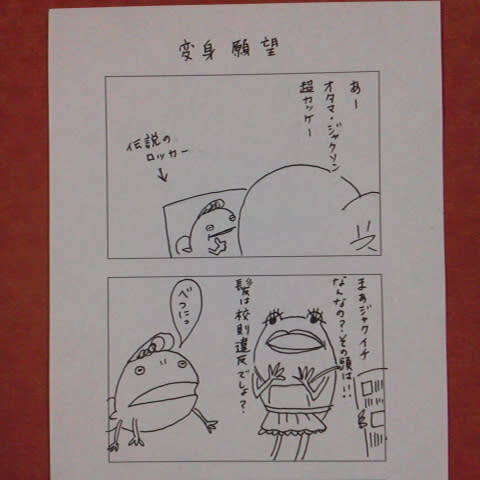 変身願望
あー
オタマ・ジャクソン
超カッケー
伝説の
ロッカー
まぁジャクイチ
なんなの?その頭は!!
髪は校則違反でしょ?
べつにっ